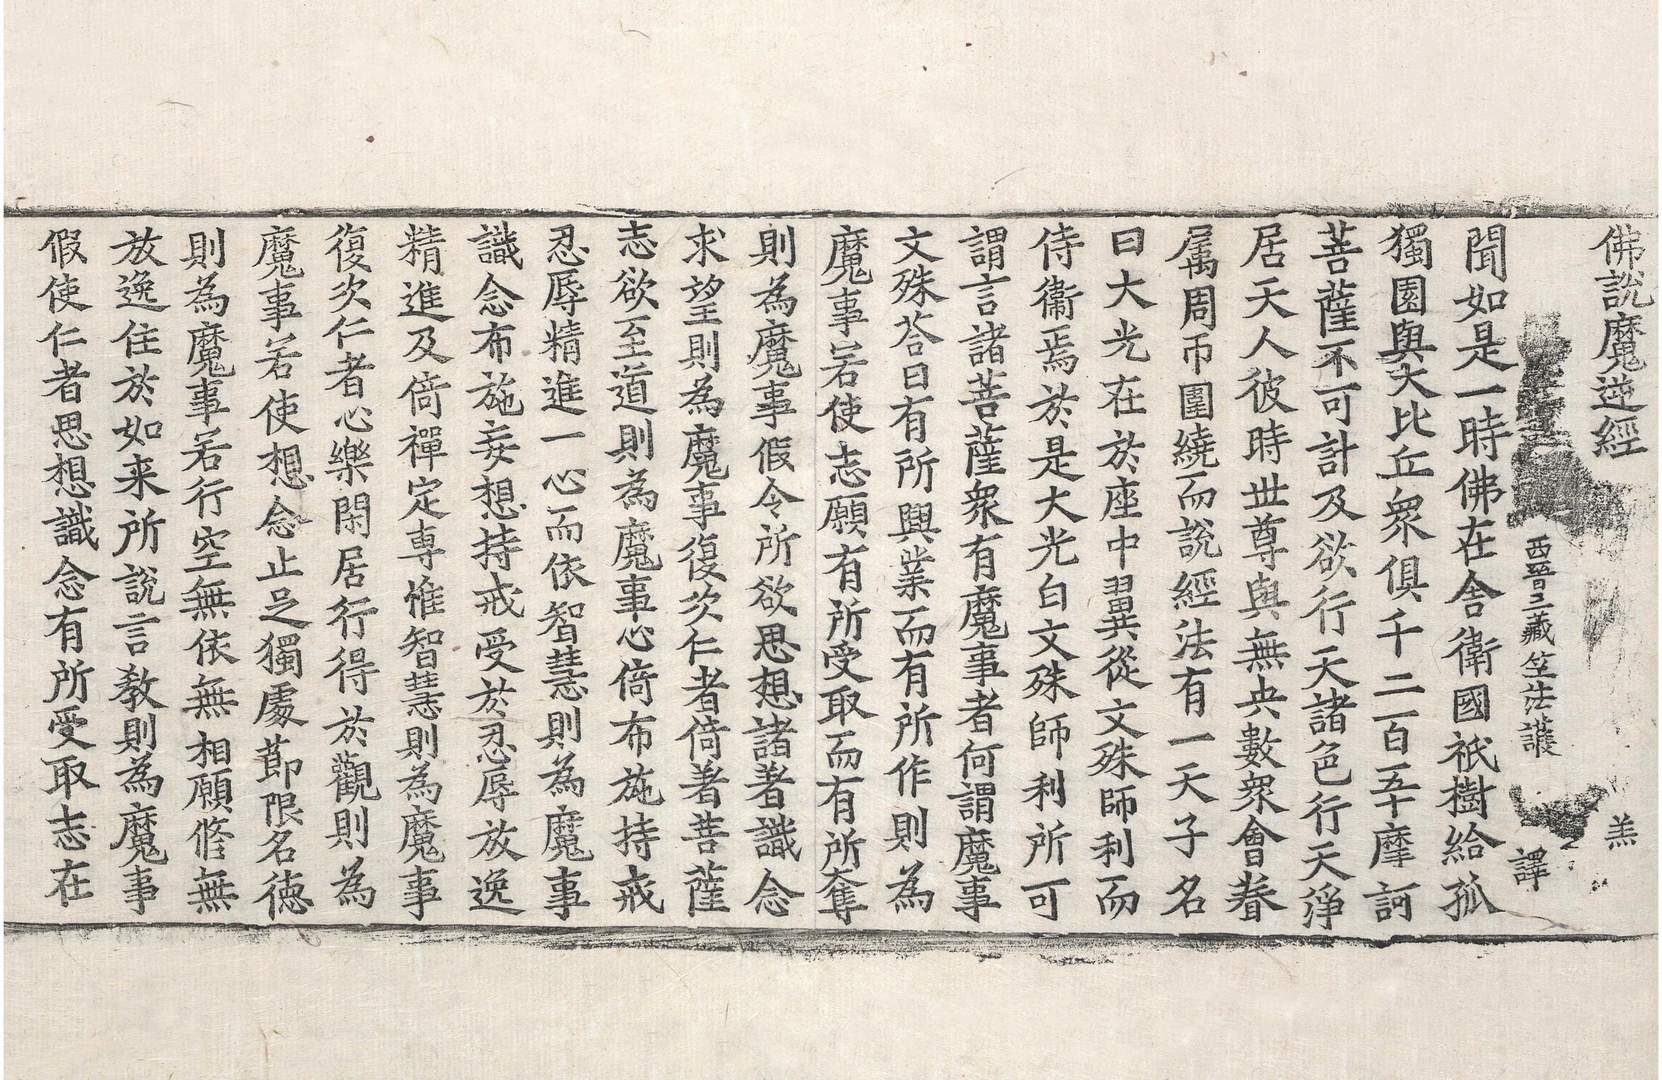 佛說魔逆經 羔
西晉三藏竺法護 譯
聞如是一時佛在舍衛國祇樹給孤
獨園與大比丘衆俱千二百五十摩訶
菩薩不可計及欲行天諸色行天淨
居天人彼時世尊與無央數衆會眷
属周帀圍繞而說經法有一天子名
曰大光在於座中翼從文殊師利而
侍衞焉於是大光白文殊師利所可
謂言諸菩薩衆有魔事者何謂魔事
文殊荅曰有所興業而有所作則為
魔事若使志願有所受取而有所奪
則為魔事假令所欲思想諸著識念
求望則為魔事復次仁者倚著菩薩
志欲至道則為魔事心倚布施持戒
忍辱精進一心而依智慧則為魔事
識念布施妄想持戒受於忍辱放逸
精進及倚禪定専惟智慧則為魔事
復次仁者心樂閑居行得於觀則為
魔事若使想念止足獨處節限名德
則為魔事若行空無依無相願脩無
放逸住於如来所說言教則為魔事
假使仁者思想識念有所受取志在